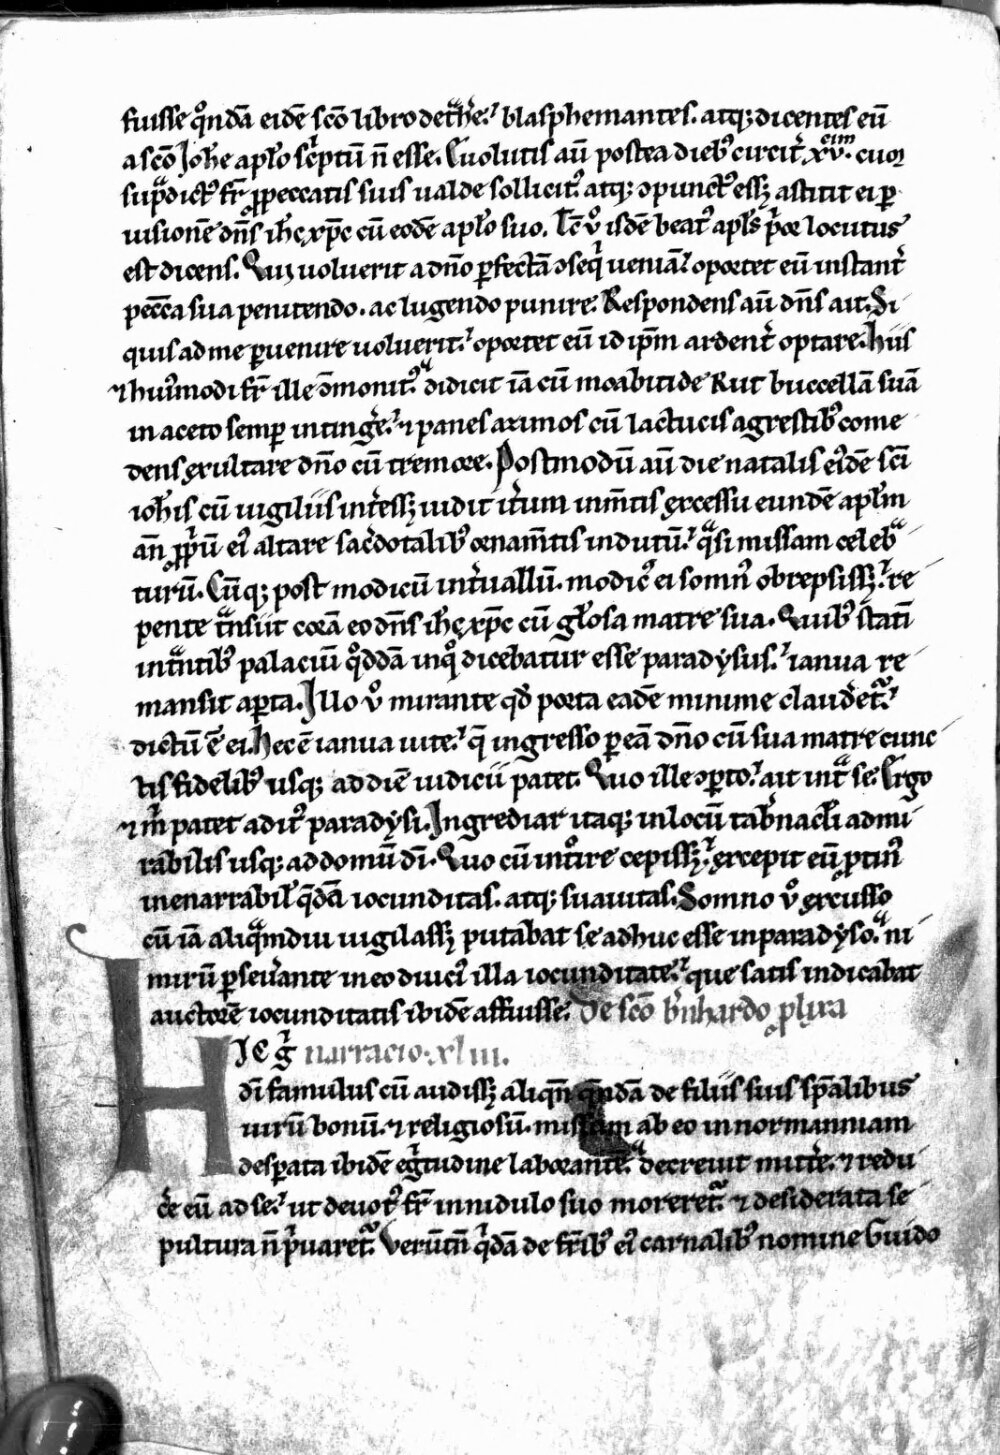 fuisse q̊ndā eidē sc̄o libro det̾he᷑. blasphemantes. atq; dicentes eū
a sc̄o Joh̄e ap̄lo sc̾ptū n̄ esse. Euolutis aū postea dieb᷒ circit᷑ .xv.cim cuoꝝ
sup̾dict᷒ fr̄ ꝓ peccatis suis ualde sollicit᷒ atq; ↄpunct᷒ essꝫ astitit ei ꝑ
uisionē dn̄s ih̄c xp̄c cū eodē ap̄lo suo. Tc̄ v̊ isdē beat᷒ ap̄ls p̾or locutus
est dicens. Quiꝫ uoluerit a dn̄o ꝑfectā ↄseq̾ ueniā. oportet eū instant᷑
pec̄ca sua penitendo. ac lugendo punire. Respondens aū dn̄s ait. Si
quis ad me ꝑuenire uoluerit. oportet eū id ip̄m ardent᷑ optare. Hiis
⁊ hui᷒modi fr̄ ille ↄmonit᷒ didicit iā cū moabitide Rut buccellā suā
in aceto semꝑ inting̾e. ⁊ panes azimos cū lactucis agrestib᷒ come
dens exultare dn̄o cū tremore. Postmodū aū die natalis ei᷒dē sc̄i
ioh̄is cū uigiliis int̾essꝫ uidit it̾um in m̄tis excessu eundē ap̄lm
an̄ ꝓp̾ū ei᷒ altare sac̾dotalib᷒ ornam̄tis indutū. q̾si missam celeb̾
turū. Cūq; post modicū int̾uallū. modic᷒ ei somn᷒ obrepsissꝫ. re
pente t̾nsiit corā eo dn̄s ih̄c xp̄c cū gl̄osa matre sua. Quib᷒ statī
int̾ntib᷒ palaciū q̊ddā in q̊ dicebatur esse paradysus. ianua re
mansit aꝑta. Illo v̊ mirante qd̄ porta eadē minime claudet᷑.
dictū ē ei. Hec ē ianua uite. q̄ ingresso ꝑ eā dn̄o cū sua matre cunc
tis fidelib᷒ usq; ad diē iudicii patet. Quo ille ↄꝑto. ait int̾ se. Ergo
⁊ m̾ patet adit᷒ paradysi. Ingrediar itaq; in locū tab̾nacl̄i admi
rabilis usq; ad domū dī. Quo cū int̊ire cepissꝫ. excepit eū ꝓtin᷒
inenarrabil̾ q̄dā iocunditas. atq; suauitas. Somno v̊ excusso
cū iā aliq̾mdiu uigilassꝫ putabat se adhuc esse in paradyso. ni
mirū ꝑseu̾ante in eo diuci᷒ illa iocunditate. que satis indicabat
auctorē iocunditatis ibidē affuisse. De sc̄o b̾nhardo plura
HIC g̾ narracio .xliii.
dī famulus cū audissꝫ aliqn̄ q̄ndā de filiis suis sp̄alibus
uirū bonū. ⁊ religiosū. missum ab eo in normanniam
desꝑata ibidē eg̾tudine laborante. decreuit mitt̾e. ⁊ redu
c̾e eū ad se. ut deuot᷒ fr̄ in nidulo suo moreret᷑ ⁊ desiderata se
pultura n̄ p̾uaret᷑. Verūtn̄ q̾dā de fr̄ib᷒ ei᷒ carnalib᷒ nomine Guido